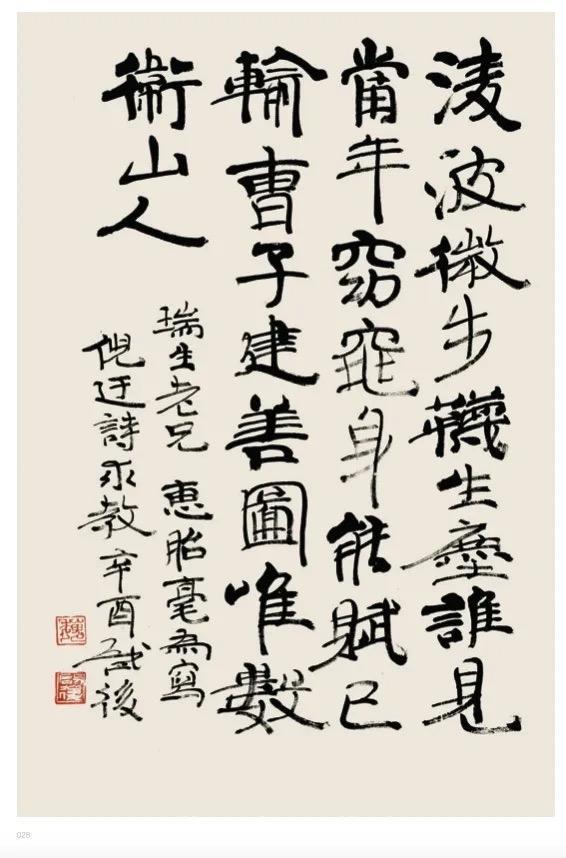 淩波微步襪生塵誰見
當年窈窕身能賦已
輸曹子建善圖唯數
衛山人
瑞生老兄 惠胎毫為寫
倪迂詩求教辛酉啟後
028